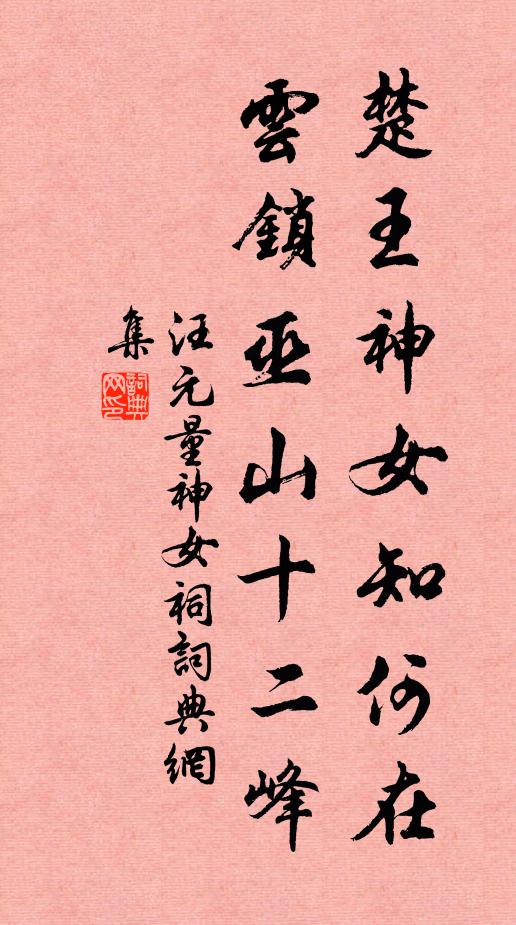 楚王神女知何在
雲鎖巫山十二峰
汪元量神女祠詞典網
集
詞典
网印